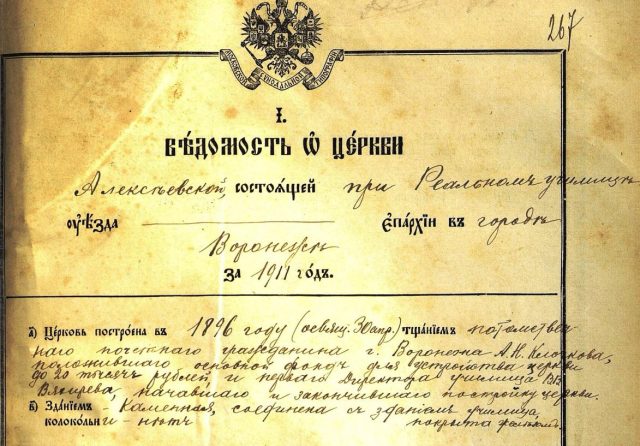 267
МОСКОВСКОЙ СѴНОДАЛЬНОЙ ТИПОГРАФІИ
І.
ВѢДОМОСТЬ Ѿ ЦЕ́РКВИ
Алексѣевской, СОСТОѦ́ЩЕЙ при Реальномъ училищѣ
ОУ҆Ѣ́ЗДА ЄПА́РХЇИ ВЪ городѣ
Воронежѣ
ЗА 1911 ГО́ДЪ.
а҃) ЦЕ́РКОВЬ ПОСТРО́ЕНА ВЪ 1896 году (освящ. 30 апр.) ТЩА́НЇЕМЪ потомствен-
наго почетнаго гражданина г. Воронежа А. Н. Клочкова,
положившаго основной фондъ для устройства церкви
до 20 тысячъ рублей и перваго Директора училища
начавшаго и закончившаго постройку церкви.
в҃) ЗДА́НЇЕМЪ - Каменная, соединена съ зданіемъ училища,
КОЛОКО́ЛЬНИ - нѣтъ покрыта